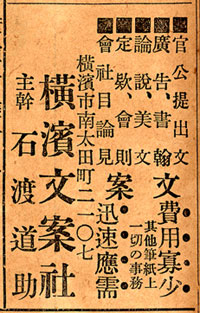 官公提出文
廣告、書翰
論說、美文
定欵、會則
會社目論見
文案
費用寡少
其他筆紙上
一切の事務
迅速應需
橫濱市南太田町二一〇七
橫濱文案社
主幹 石渡道助